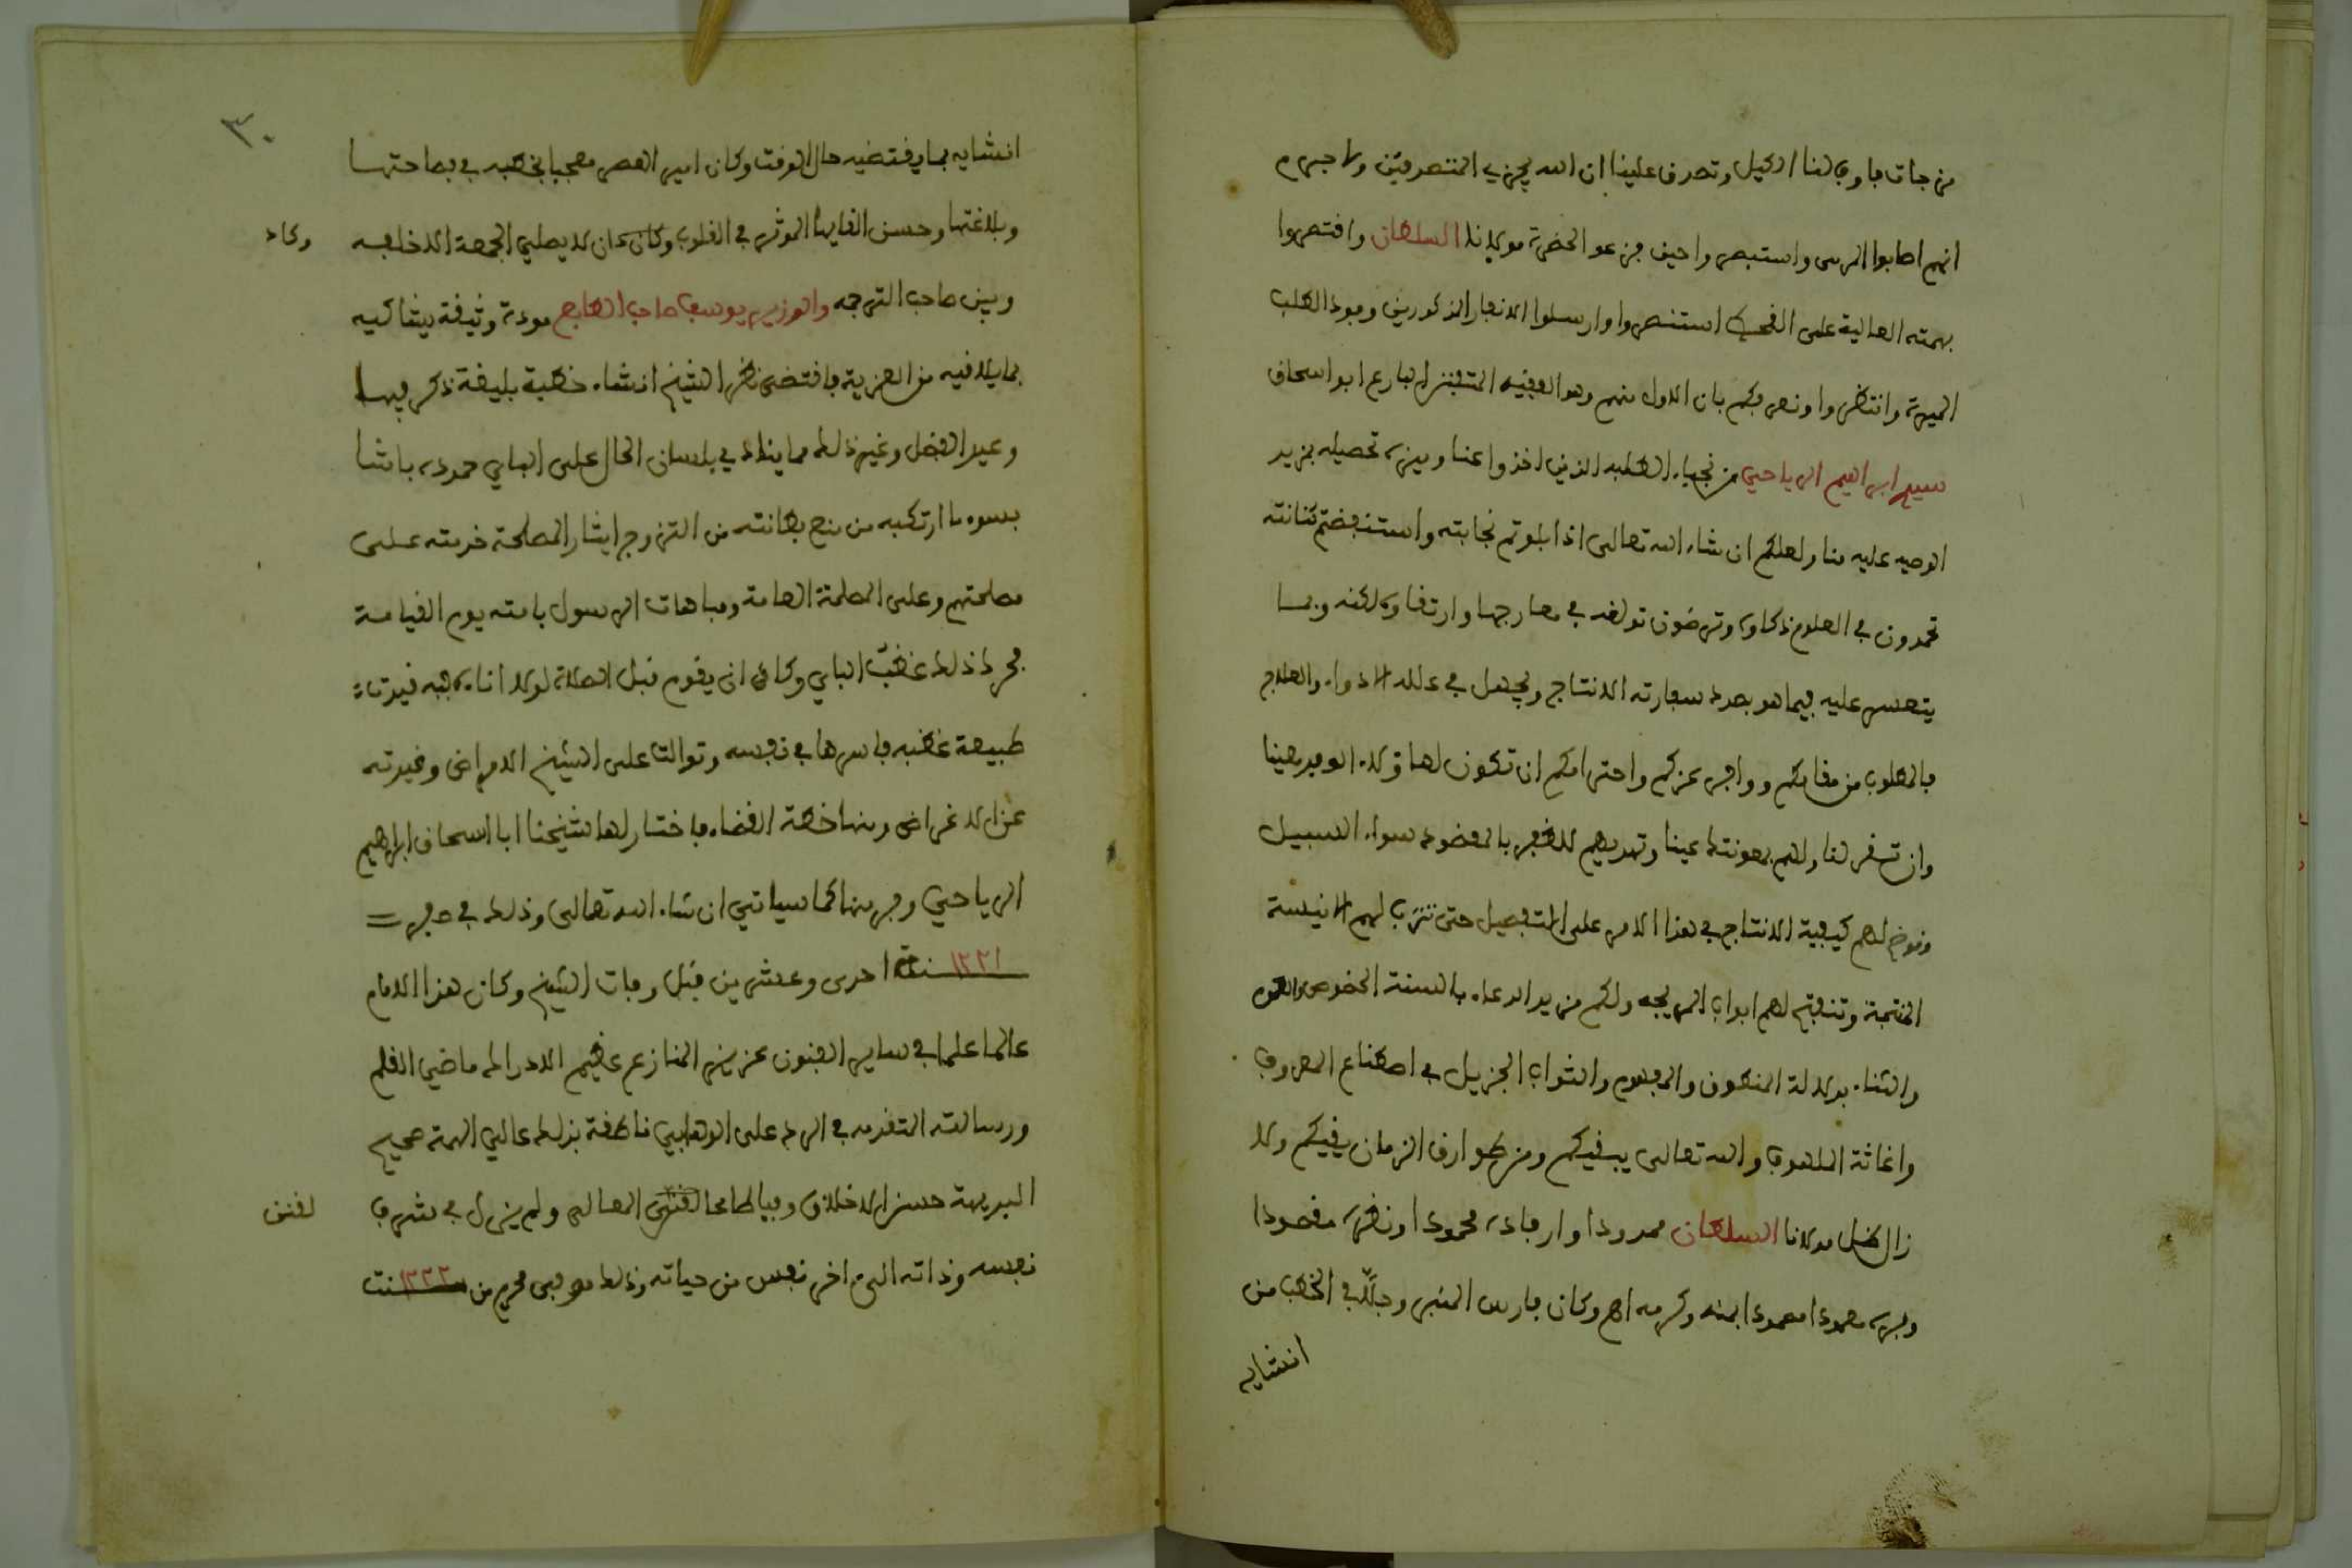 من جات فاوف لنا الكيل وتصدق علينا ان الله يجزي المتصدقين ولا جرم
انهم اصابوا المرمى واستبصروا حين فزعوا لحضرة مولانا السلطان واقتصروا
بهمته العالية على القحط استنصروا وارسلوا الانفار المذكورين وفود الطلب
الميرة وانتظروا ونعرفكم بان الاول منهم وهو الفقيه المتفنن البارع ابو اسحاق
سيدي ابراهيم الرياحي من نجباء الطلبة الذين اخذوا عنا وميزه تحصيله بمزيد
الوصيه عليه منا ولعلكم ان شاء الله تعالى اذا بلوتم نجابته واستنفضتم كنانته
تحمدون في العلوم ذكاوه وترضون توغله في معارجها وارتقاوه لكنه ربما
يتعسر عليه فيما هو بصدد سفارته الانتاج ويجهل في علله الادواء والعلاج
فالمطلوب من مقامكم ووافر عزكم واحترامكم ان تكون لهاولاء الوفد معينا
وان تسفر لنا ولهم بمعونتك عينا وتهديهم للظفر بالمقصود سواء السبيل
وتوضح لهم كيفية الانتاج في هذا الامر على التفصيل حتى تترتب لهم الاقيسة
المنتجة وتنفتح لهم ابواب المرتجه ولكم مزيد الدعاء بالسنة الخصوص والعموم
والثناء بدلالة المنطوق والمفهوم والثواب الجزيل في اصطناع المعروف
واغاثة الملهوف والله تعالى يبقيكم ومن طوارق الزمان يقيكم ولا
زال ظل مولانا السلطان ممدودا وارفاده محمودا ونظره مقصودا
وفره معمودا بمنه وكرمه اهـ وكان فارس المنبر وجلّ في الخطب من
انشايه
٣٠
انشايه بما يقتضيه حال الوقت وكان امير العصر معجبا بخطبه في فصاحتها
وبلاغتها وحسن القايها الموثر في القلوب وكان كان لا يصلي الجمعة الا خلفه
وكاد
وبين صاحب الترجمه والوزير يوسف صاحب الطابع مودة وثيقة يتفاكيه
بما يلاقيه من العزبة فاقتضى نظر الشيخ انشاء خطبة بليغة ذكر فيها
وعيد العضل وغير ذلك مما ينادي بلسان الحال على الباي حموده باشا
بسوء ما ارتكبه من منع بطانته من التزوج ايثار المصلحة خدمته على
مصلحتهم وعلى المصلحة العامة ومباهات الرسول بامته يوم القيامة
فحرك ذلك غضب الباي وكاد ان يقوم قبل الصلاة لولا اناه غلبه فيرتاء
طبيعة غضبه فاسرها في نفسه وتوالت على الشيخ الامراض وغيرته
عن الاغراض ومنها خطة القضاء فاختار لها شيخنا ابا اسحاق ابراهيم
الرياحي وفر منها كما سياتي ان شاء الله تعالى وذلك في صفر
١٢٢١ سنة احدى وعشرين قبل وفات الشيخ وكان هذا الامام
عالما علما في ساير الفنون عزيز المنازع عظيم الادراك ماضي القلم
ورسالته المتقدمه في الرد على الوهابي ناطقة بذلك عالي الهمة صحيح
البديهة حسن الاخلاق وفيا طامحا لقنص المعالي ولم يزل في شرف
لقنص
نفسه وذاته الى اخر نفس من حياته وذلك في محرم من ١٢٢٢ سنت